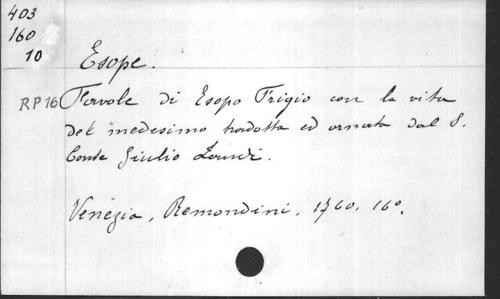 403
160
10
Esope.
RP16 Favole di Esopo Frigio con la vita
del medesimo tradotta ed ornata dal S.
Conte Giulio Landi.
Venezia, Remondini, 1760. 16º.